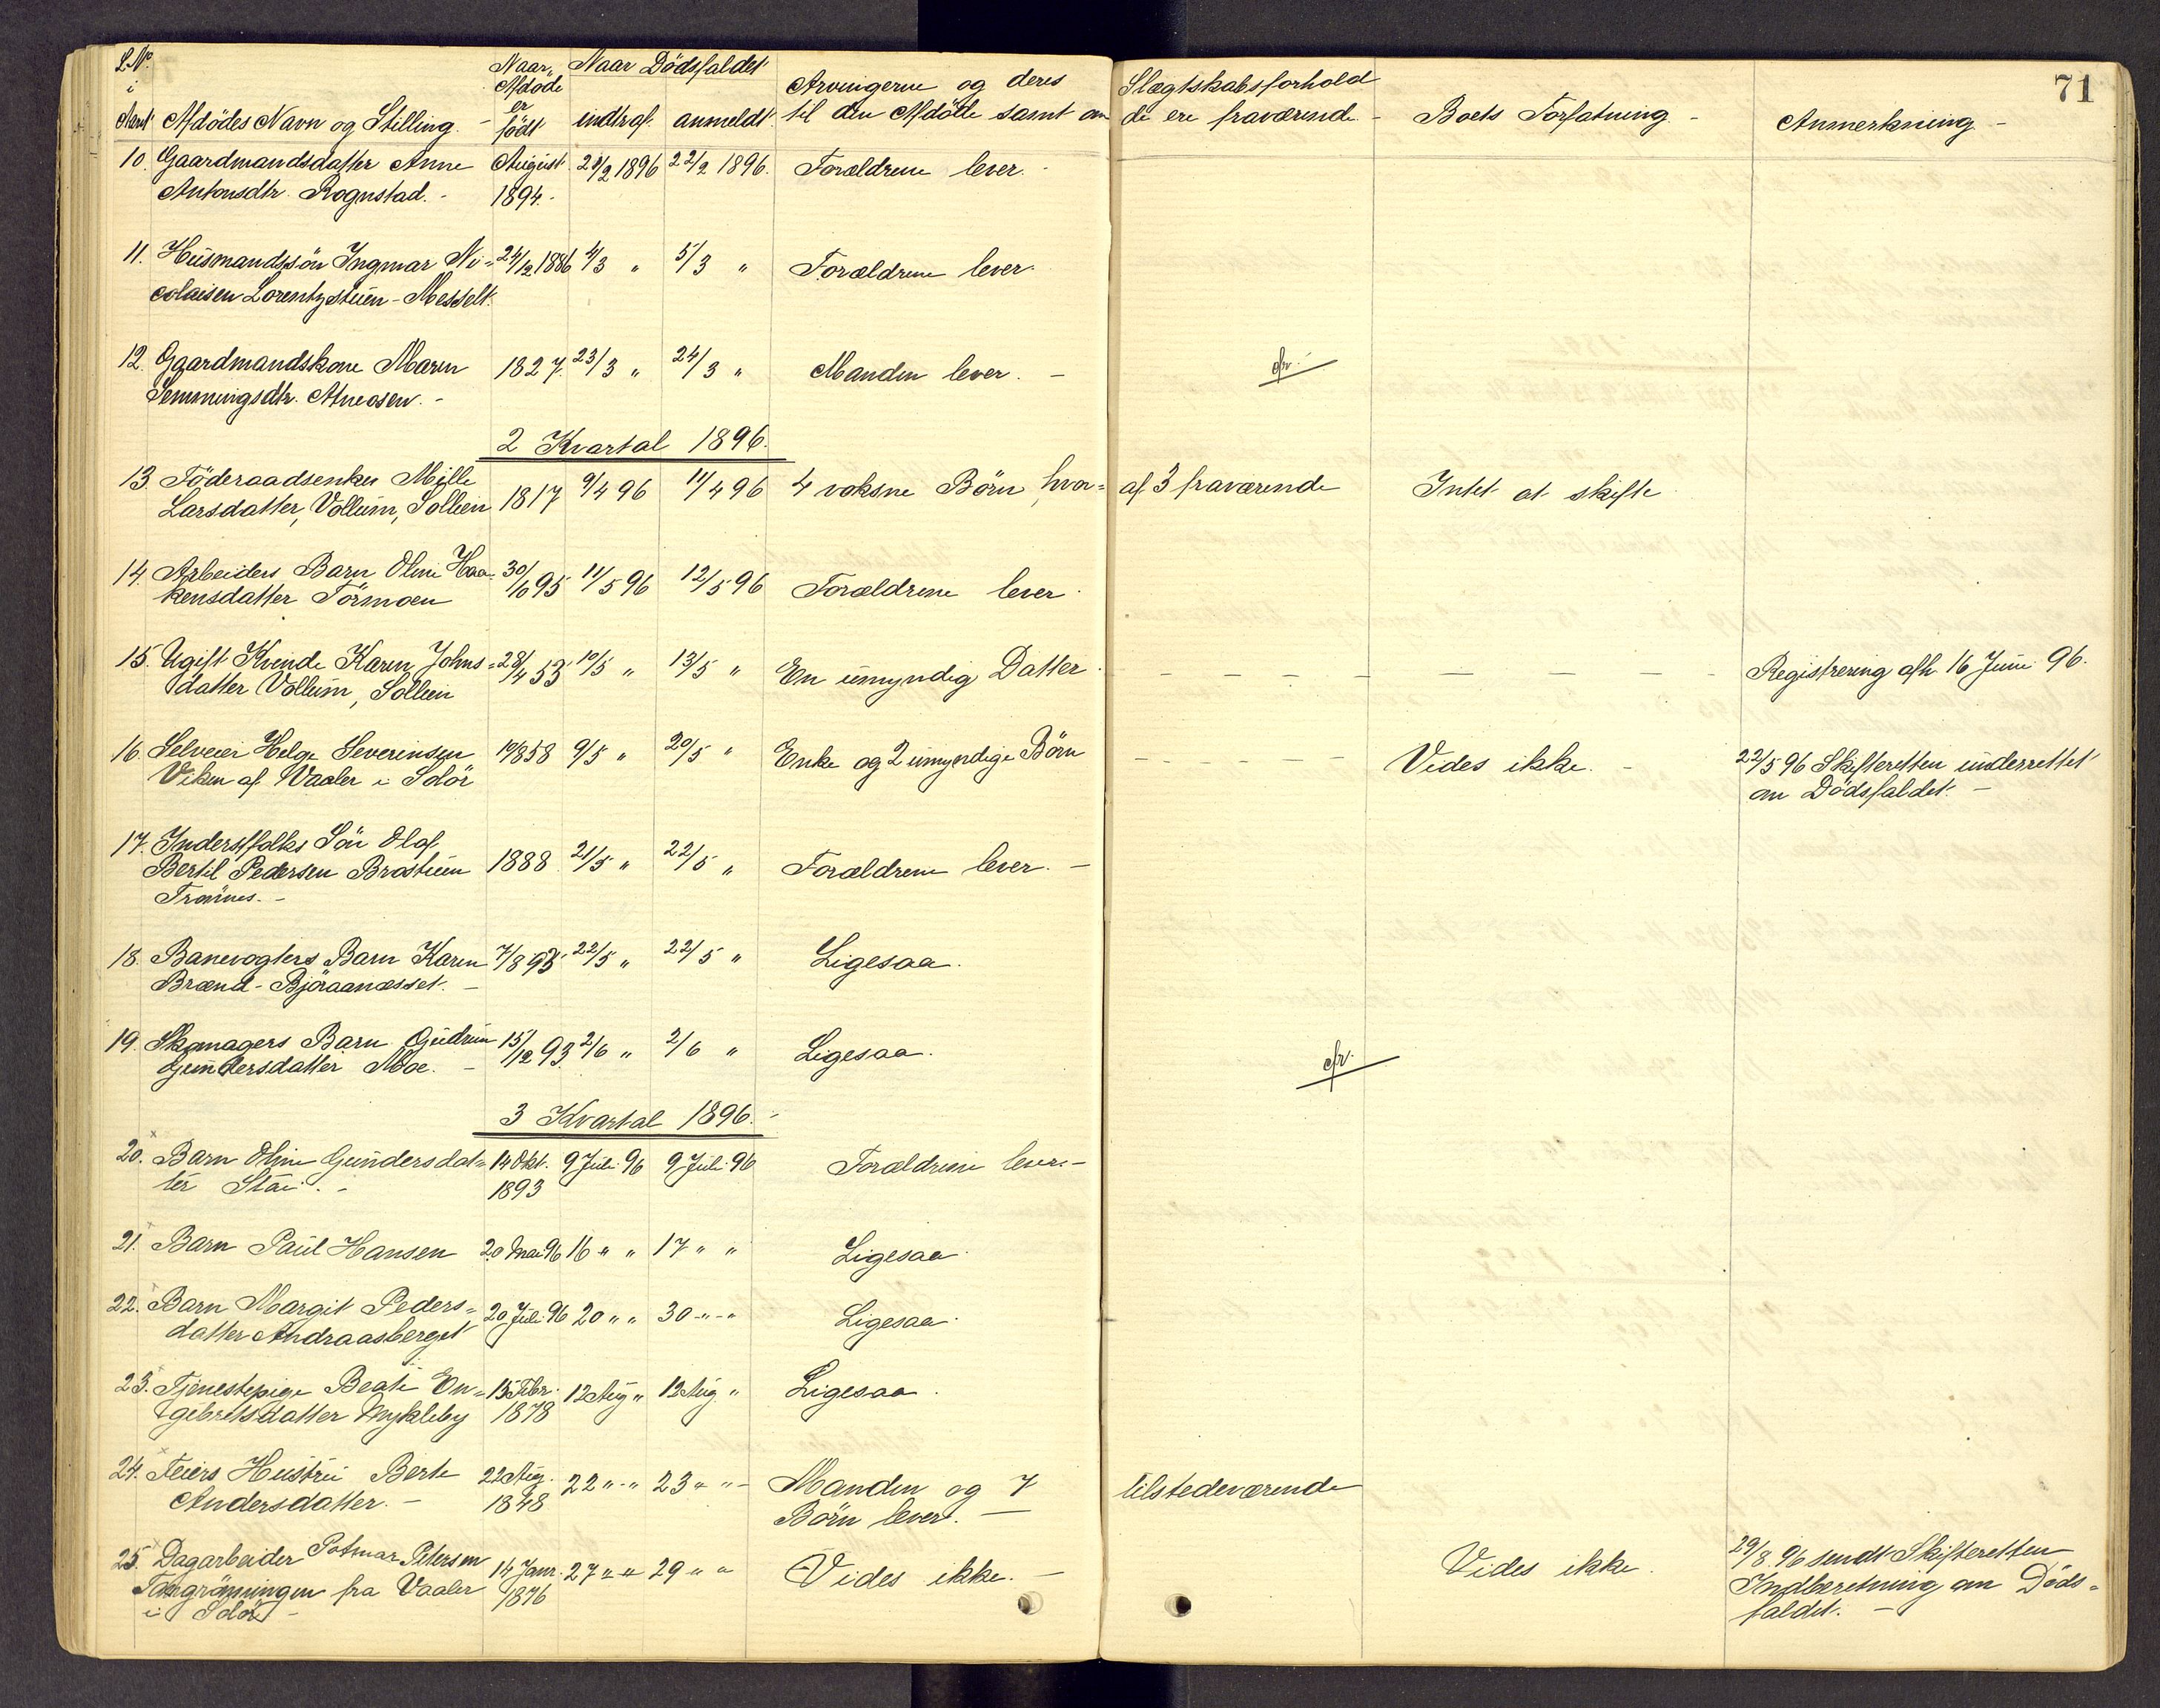 71
L.No. Naar Naar Dödsfaldet Arvingerne og deres Slægtskabsforhold
i Afdöde
Aaret Afdödes Navn og Stilling er født indtraf. anmeldt. til den Afdöde samt om de ere fraværende. Boets Forfatning. Anmerkning
10. Gaardmandsdatter Anne August 21/2 1896 22/2 1896. Forældrene lever.
Antonsdtr. Rognstad. 1894.
11. Husmandssön Ingmar Ni= 24/12 1886 4/3 " 5/3 " Forældrene lever.
colaisen Lorentzstuen-Messelt.
12. Gaardmandskone Maren 1827. 23/3 " 24/3 " Manden lever.
Semmingsdtr. Atneosen.
2 Kvartal 1896.
13. Föderaadsenke Mille 1817 9/4 96 11/4 96 4 voksne Börn, hvor= af 3 fraværende Intet at skifte
Larsdatter, Vollum, Sollien
14. Arbeiders Barn Oline Haa- 30/10 95 11/5 96 12/5 96 Forældrene lever.
kensdatter Törmoen
15. Ugift Kvinde Karen Johns= 28/4 53 10/5 " 13/5 " En umyndig Datter. Registrering afh. 16 Juni 96.
datter Vollum, Sollien
16. Selveier Helge Severinsen 10/8 58 9/5 " 20/5 " Enke og 2 umyndige Börn Vides ikke. 22/5 96 Skifteretten underrettet
Viken af Vaaler i Solör om Dödsfaldet.
17. Inderstfolks Sön Olaf
Bertil Pedersen Brostuen 1888 21/5 " 22/5 " Forældrene lever.
Trønnes.
18. Banevogters Barn Karen 7/8 95 22/5 " 22/5 " Ligesaa.
Brænd-Björaanæsset.
19. Skomagers Barn Gudrun 15/12 93. 2/6 " 2/6 " Ligesaa.
Gundersdatter Moe.
3 Kvartal 1896.
20. Barn Oline Gundersdat= 14 Okt. 9 Juli 96 9 Juli 96 Forældrene lever.
ter Stai. 1893
21. Barn Paul Hansen 20 Mai 96 16 " " 17 " " Ligesaa.
22. Barn Margit Peders= 20 Juli 96 20 " " 30 " " Ligesaa.
datter Andraasberget
23. Tjenestepige Beate En= 15 Febr. 12 Aug " 12 Aug. " Ligesaa.
gebretsdatter Mykleby 1878
24. Feiers Hustru Berte 22 Aug. 22 " " 23 " " Manden og 7 tilstedeværende
Andersdatter. 1848 Börn lever.
25. Dagarbeider Potmar Petersen 14 Janr. 27 " " 29 " " Vides ikke. Vides ikke. 29/8 96 sendt Skifteretten
fra Vaaler 1876 Indberetning om Döds=
i Solör faldet.